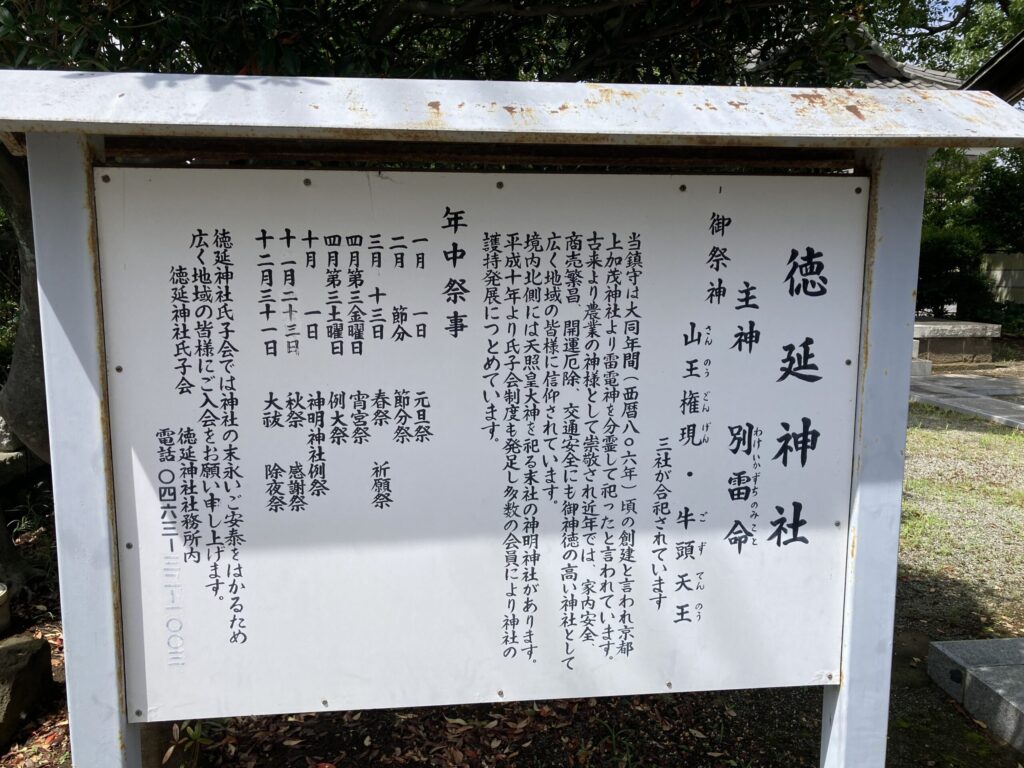 徳延神社
主神 別雷命
わけいかずちのみこと
御祭神
山王権現・牛頭天王
さんのうごんげん ごずてんのう
三社が合祀されています
当鎮守は大同年間(西暦八〇六年)頃の創建と言われ京都
上加茂神社より雷電神を分霊して祀ったと言われています。
古来より農業の神様として崇敬され近年では、家内安全、
商売繁昌、開運厄除、交通安全にも御神徳の高い神社として
広く地域の皆様に信仰されています。
境内北側には天照皇大神を祀る末社の神明神社があります。
平成十年より氏子会制度も発足し多数の会員により神社の
護持発展につとめています。
年中祭事
一月 一日 元旦祭
二月 節分 節分祭
三月 十三日 春祭 祈願祭
四月第三金曜日 宵宮祭
四月第三土曜日 例大祭
十月 一日 神明神社例祭
十一月二十三日 秋祭 感謝祭
十二月三十一日 大祓 除夜祭
徳延神社氏子会では神社の末永いご安泰をはかるため
広く地域の皆様にご入会をお願い申し上げます。
徳延神社氏子会 徳延神社社務所内
電話 〇四六三ー